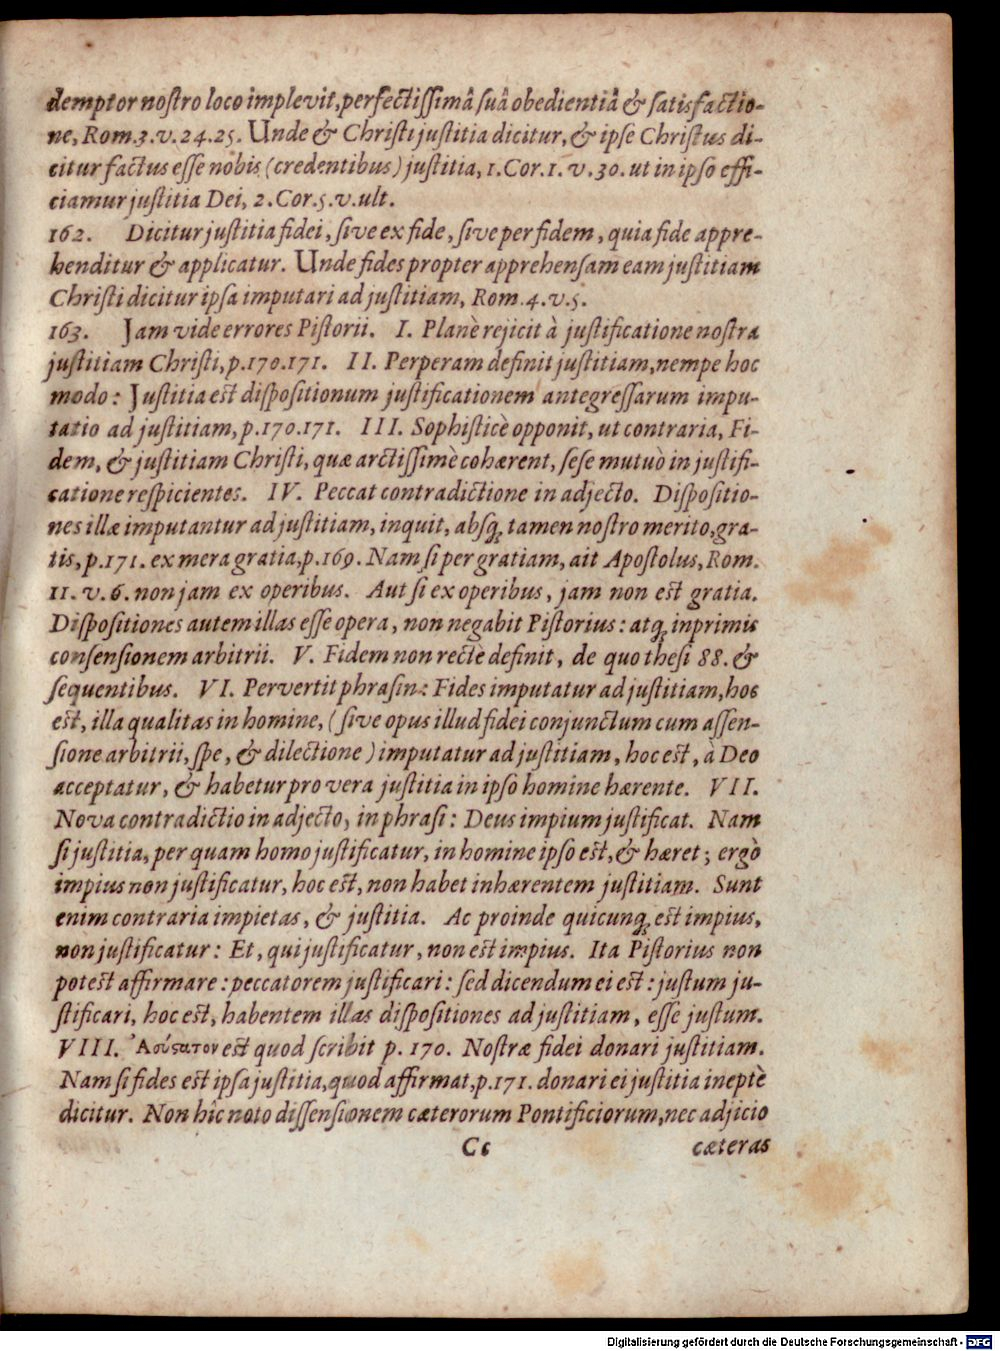 demptor nostro loco implevit, perfectissimâ suâ obedientiâ & satisfactio-
ne, Rom.3.v.24.25. Unde & Christi justitia dicitur, & ipse Christus di-
citur factus esse nobis (credentibus) justitia, 1.Cor.1.v.30. ut in ipso effi-
ciamur justitia Dei, 2.Cor.5.v.ult.
162. Dicitur justitia fidei, sive ex fide, sive per fidem, quia fide appre-
henditur & applicatur. Unde fides propter apprehensam eam justitiam
Christi dicitur ipsa imputari ad justitiam, Rom.4.v.5.
163. Jam vide errores Pistorii. I. Planè rejicit à justificatione nostra
justitiam Christi, p.170.171. II. Perperam definit justitiam, nempe hoc
modo: Justitia est dispositionum justificationem antegressarum impu-
tatio ad justitiam, p.170.171. III. Sophisticè opponit, ut contraria, Fi-
dem, & justitiam Christi, quæ arctissimè cohærent, sese mutuò in justifi-
catione respicientes. IV. Peccat contradictione in adjecto. Dispositio-
nes illæ imputantur ad justitiam, inquit, absq; tamen nostro merito, gra-
tis, p.171. ex mera gratia, p.169. Nam si per gratiam, ait Apostolus, Rom.
11.v.6. non jam ex operibus. Aut si ex operibus, jam non est gratia.
Dispositiones autem illas esse opera, non negabit Pistorius: atq; inprimis
consensionem arbitrii. V. Fidem non rectè definit, de quo thesi 88. &
sequentibus. VI. Pervertit phrasin: Fides imputatur ad justitiam, hoc
est, illa qualitas in homine, (sive opus illud fidei conjunctum cum assen-
sione arbitrii, spe, & dilectione) imputatur ad justitiam, hoc est, à Deo
acceptatur, & habetur pro vera justitia in ipso homine hærente. VII.
Nova contradictio in adjecto, in phrasi: Deus impium justificat. Nam
si justitia, per quam homo justificatur, in homine ipso est, & hæret; ergò
impius non justificatur, hoc est, non habet inhærentem justitiam. Sunt
enim contraria impietas, & justitia. Ac proinde quicunq; est impius,
non justificatur: Et, qui justificatur, non est impius. Ita Pistorius non
potest affirmare: peccatorem justificari: sed dicendum ei est: justum ju-
stificari, hoc est, habentem illas dispositiones ad justitiam, esse justum.
VIII. Ἀσύστατον est quod scribit p. 170. Nostræ fidei donari justitiam.
Nam si fides est ipsa justitia, quod affirmat, p.171. donari ei justitia ineptè
dicitur. Non hîc noto dissensionem cæterorum Pontificiorum, nec adjicio
Cc cæteras
Digitalisierung gefördert durch die Deutsche Forschungsgemeinschaft - DFG